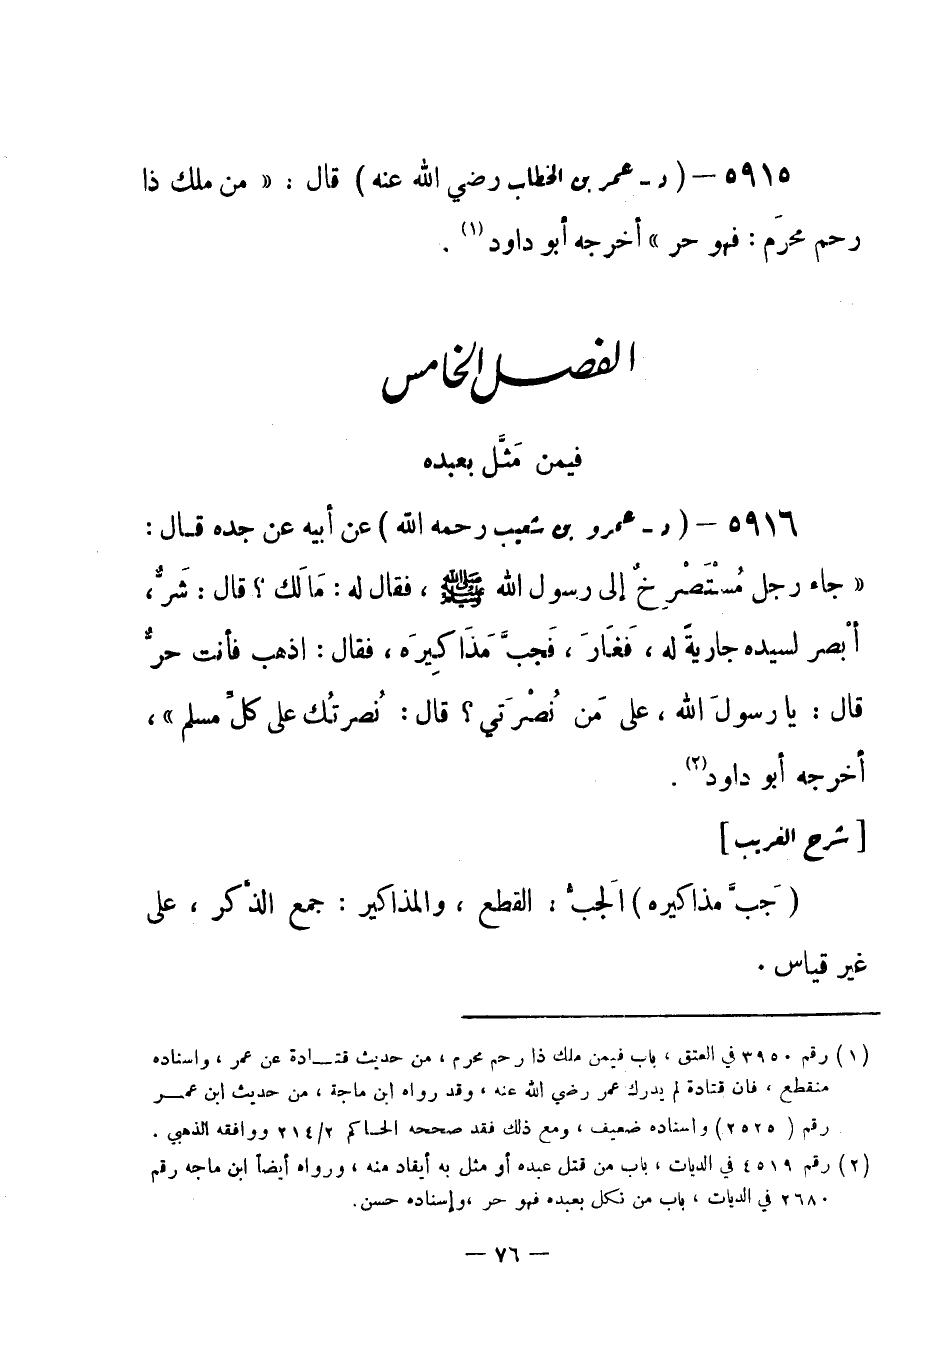 ٥٩١٥ – ( د ـ عمر بن الخطاب رضي الله عنه ) قال : « من ملك ذا
رحم محرَم : فهو حر » أخرجه أبو داود (١) .
الفصل الخامس
فيمن مَثَّل بعبده
٥٩١٦ – ( د ـ عمرو بن شعيب رحمه الله ) عن أبيه عن جده قال :
« جاء رجل مُسْتَصْرِخٌ إلى رسول الله ﷺ ، فقال له : مَالَك ؟ قال : شَرٌّ ،
أبْصر لسيده جاريةً له ، فَغَارَ ، فَجبَّ مَذَاكِيرَه ، فقال : اذهب فأنت حرٌّ
قال : يا رسولَ الله ، على مَن نُصْرَتي ؟ قال : نُصرتُك على كلِّ مسلم » ،
أخرجه أبو داود (٢) .
[ شرح الغريب ]
( جَبَّ مذاكيره ) الَجبُّ : القطع ، والمذاكير : جمع الذَّكر ، على
غير قياس .
(١) رقم ٣٩٥٠ في العتق ، باب فيمن ملك ذا رحم محرم ، من حديث قتادة عن عمر ، واسناده
منقطع ، فان قتادة لم يدرك عمر رضي الله عنه ، وقد رواه ابن ماجة ، من حديث ابن عمر
رقم ( ٢٥٢٥ ) واسناده ضعيف ، ومع ذلك فقد صححه الحاكم ٢/٢١٤ ووافقه الذهبي .
(٢) رقم ٤٥١٩ في الديات ، باب من قتل عبده أو مثل به أيقاد منه ، ورواه أيضاً ابن ماجه رقم
٢٦٨٠ في الديات ، باب من نكل بعبده فهو حر ، وإسناده حسن .
– ٧٦ –